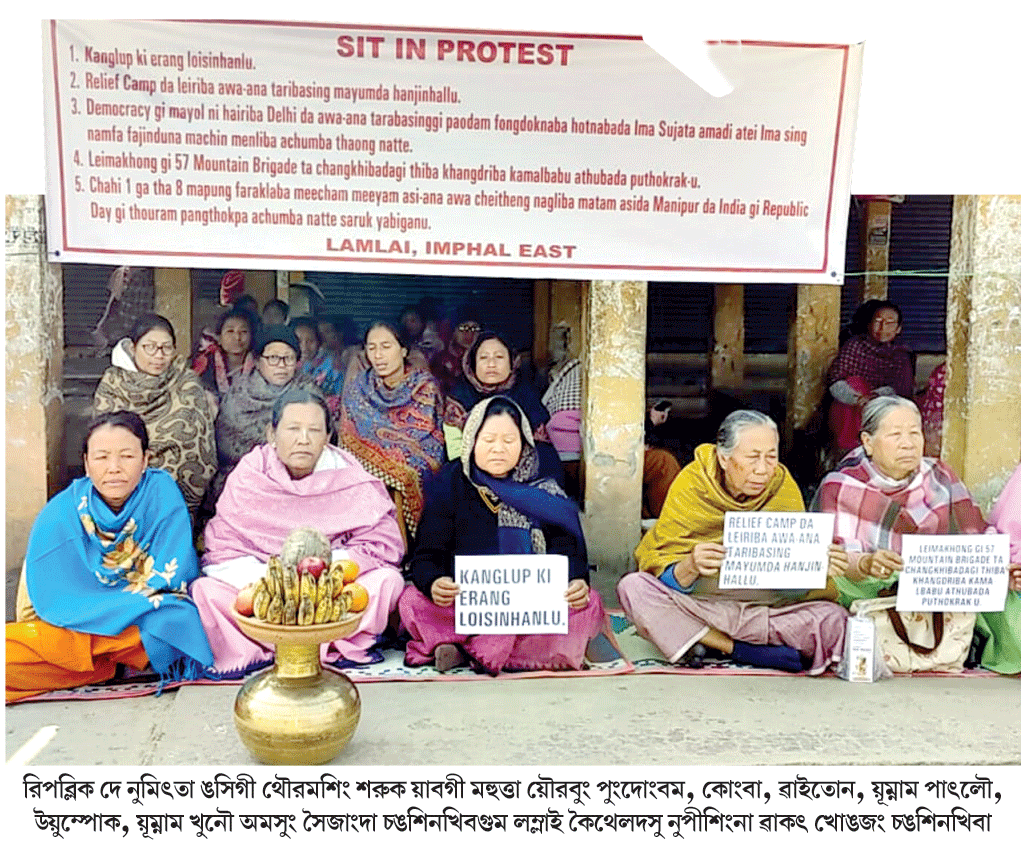 SIT IN PROTEST
1. Kanglup ki erang loisinhanlu.
2. Relief Camp da leiriba awa-ana taribasing mayumda hanjinhallu.
3. Democracy gi mayol ni hairiba Delhi da awa-ana tarabasinggi paodam fongdoknaba hotnabada Ima Sujata amadi atei Ima sing
namfa fajinduna machin menliba achumba thaong natte.
4. Leimakhong gi 57 Mountain Brigade ta changkhibadagi thiba khangdriba kamalbabu athubada puthokrak-u.
5. Chahi 1 ga tha 8 mapung faraklaba meecham meeyam asi-ana awa cheitheng nagliba matam asida Manipur da India gi Republic
Day gi thouram pangthokpa achumba natte saruk yabiganu.
LAMLAI, IMPHAL EAST
KANGLUP KI
ERANG
LOISINHANLU.
RELIEF CAMP DA
LEIRIBA AWA-ANA
TARIBASING
MAYUMDA HANJIN-
HALLU.
LEIMAKHONG GI 57
MOUNTAIN BRIGADE TA
CHANGKHIBADAGI THIBA
KHANGDRIBA KAMA
LBABU ATHUBADA
PUTHOKRAK U.
রিপব্লিক দে নুমিৎতা ঙসিগী থৌরমশিং শরুক য়াবগী মহুত্তা য়ৌরবুং পুংদোংবম, কোংবা, ৱাইতোন, য়ূম্নাম পাৎলৌ,
উয়ুম্পোক, য়ূম্নাম খুনৌ অমসুং সৈজাংদা চঙশিনখিবগুম লম্লাই কৈথেলদসু নুপীশিংনা ৱাকৎ খোঙজং চঙশিনখিবা